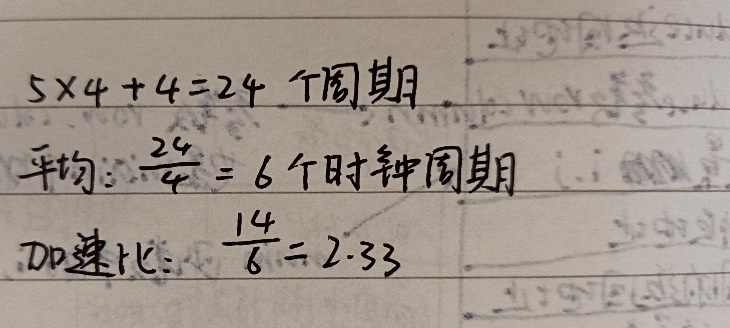 5×4+4=24 个周期
平均: 24/4 = 6 个时钟周期
加速比: 14/6 = 2.33